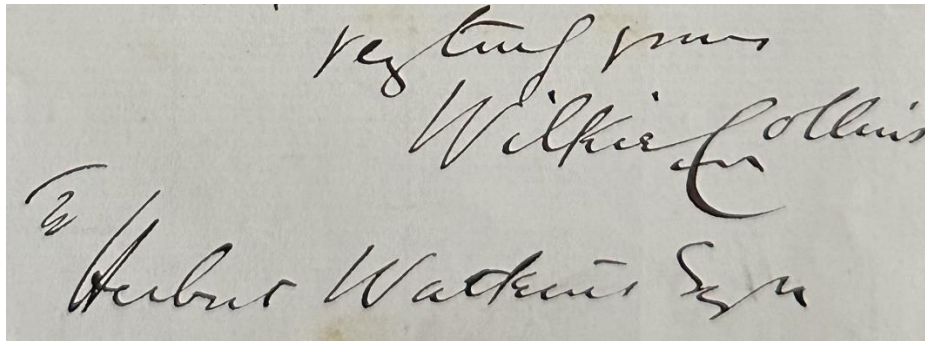 Very truly yours
Wilkie Collins
To
Herbert Watkins Esqr